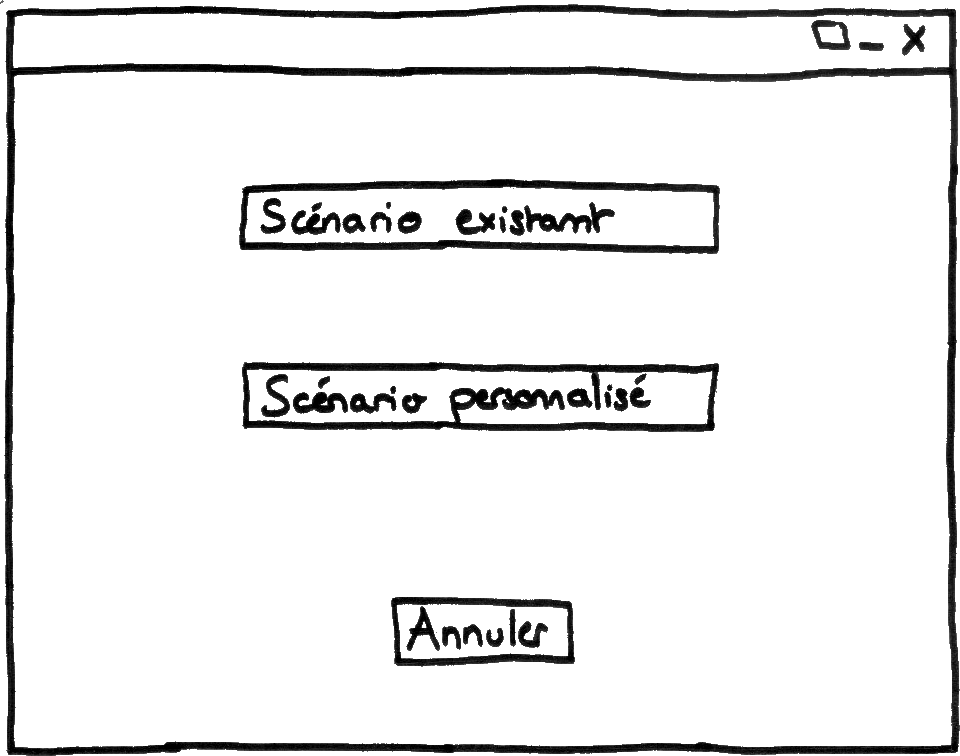 Scénario existant
Scénario personnalisé
Annuler